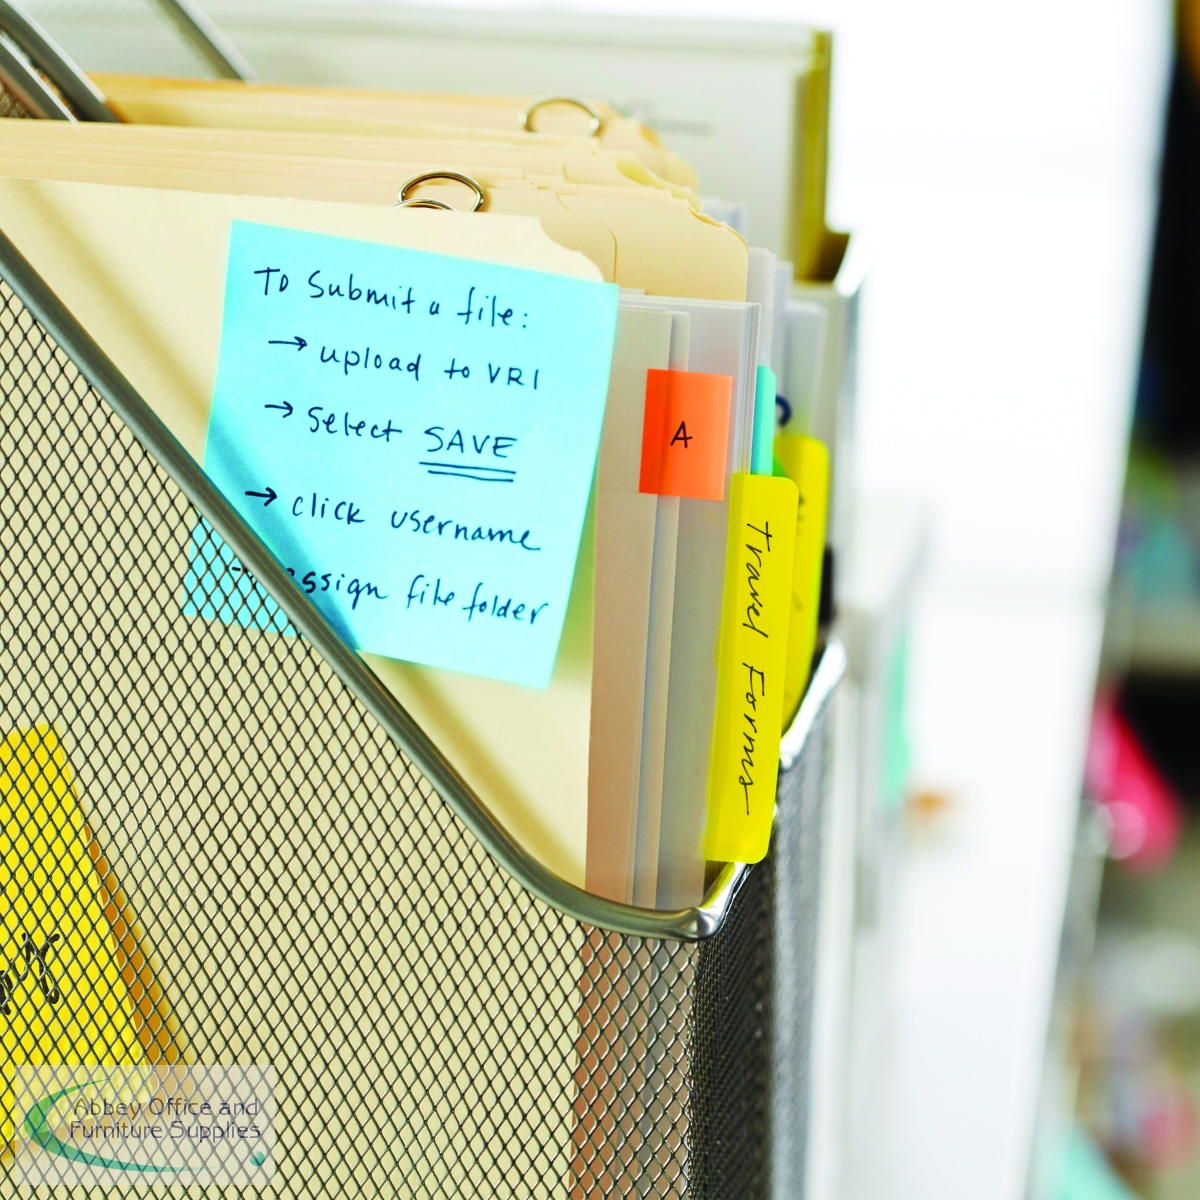 To Submit a file:
→ upload to VRI
→ Select SAVE
→ click username
→ assign file folder
A
Travel Forms
Abbey Office and
Furniture Supplies